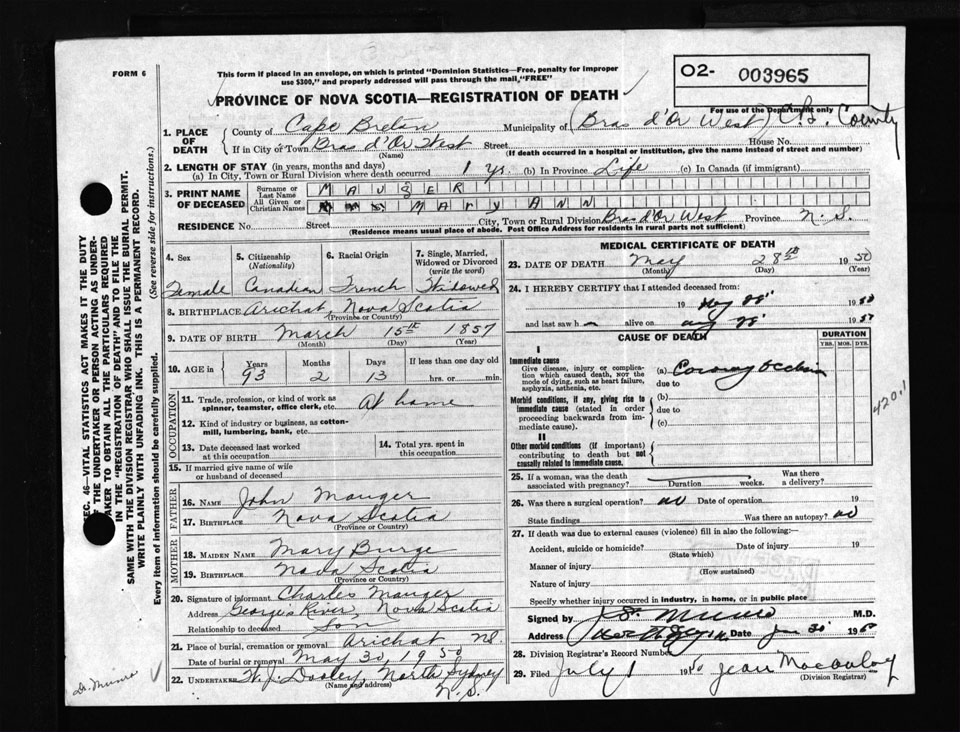 FORM 6
This form if placed in an envelope, on which is printed "Dominion Statistics—Free, penalty for improper
use $300," and properly addressed will pass through the mail, "FREE"
O2- 003965
For use of the Department only
PROVINCE OF NOVA SCOTIA—REGISTRATION OF DEATH
1. PLACE OF DEATH
County of Cape Breton Municipality of (Bras d'Or West) C.B. County
If in City or Town Bras d'Or West Street House No.
(Name) (If death occurred in a hospital or institution, give the name instead of street and number)
2. LENGTH OF STAY (in years, months and days)
(a) In City, Town or Rural Division where death occurred 1 yr. (b) In Province Life (c) In Canada (if immigrant)
3. PRINT NAME OF DECEASED
Surname or Last Name MAUGER
All Given or Christian Names MARY ANN
RESIDENCE No. Street City, Town or Rural Division Bras d'Or West Province N.S.
(Residence means usual place of abode. Post Office Address for residents in rural parts not sufficient)
4. Sex 5. Citizenship (Nationality) 6. Racial Origin 7. Single, Married, Widowed or Divorced (write the word)
Female Canadian French Widowed
8. BIRTHPLACE Arichat Nova Scotia
(Province or Country)
9. DATE OF BIRTH March 15th 1857
(Month) (Day) (Year)
10. AGE in Years Months Days If less than one day old
93 2 13 hrs. or min.
OCCUPATION
11. Trade, profession, or kind of work as
spinner, teamster, office clerk, etc. At home
12. Kind of industry or business, as cotton-
mill, lumbering, bank, etc.
13. Date deceased last worked
at this occupation
14. Total yrs. spent in
this occupation
15. If married give name of wife
or husband of deceased
FATHER
16. NAME John Mauger
17. BIRTHPLACE Nova Scotia
(Province or Country)
MOTHER
18. MAIDEN NAME Mary Burge
19. BIRTHPLACE Nova Scotia
(Province or Country)
20. Signature of informant Charles Mauger
Address George's River, Nova Scotia
Relationship to deceased Son
21. Place of burial, cremation or removal Arichat NS
Date of burial or removal May 30, 1950
22. UNDERTAKER W.J. Dooley, North Sydney
(Name and address) N.S.
MEDICAL CERTIFICATE OF DEATH
23. DATE OF DEATH May 28th 1950
(Month) (Day) (Year)
24. I HEREBY CERTIFY that I attended deceased from:
19 1950
and last saw h alive on 1950
CAUSE OF DEATH DURATION
YRS. MOS. DYS.
I
Immediate cause
Give disease, injury or complica-
tion which caused death, nor the
mode of dying, such as heart failure,
asphyxia, asthenia, etc.
(a) Coronary Occlusion
due to
Morbid conditions, if any, giving rise to
immediate cause (stated in order
proceeding backwards from im-
mediate cause).
(b)
due to
(c)
420.1
II
Other morbid conditions (if important)
contributing to death but not
causally related to immediate cause.
25. If a woman, was the death
associated with pregnancy? Duration weeks. Was there
a delivery?
26. Was there a surgical operation? no Date of operation 19
State findings Was there an autopsy? no
27. If death was due to external causes (violence) fill in also the following:
Accident, suicide or homicide? Date of injury 19
(State which)
Manner of injury
(How sustained)
Nature of injury
Specify whether injury occurred in industry, in home, or in public place
Signed by Munro M.D.
Address Date June 30 1950
28. Division Registrar's Record Number
29. Filed July 1 1950 Jean Macaulay
(Division Registrar)
SEC. 46—VITAL STATISTICS ACT MAKES IT THE DUTY
OF THE UNDERTAKER OR PERSON ACTING AS UNDER-
TAKER TO OBTAIN ALL THE PARTICULARS REQUIRED
IN THE "REGISTRATION OF DEATH" AND TO FILE THE
SAME WITH THE DIVISION REGISTRAR WHO SHALL ISSUE THE BURIAL PERMIT.
WRITE PLAINLY WITH UNFADING INK. THIS IS A PERMANENT RECORD.
Every item of information should be carefully supplied. (See reverse side for instructions.)
Dr. Munro